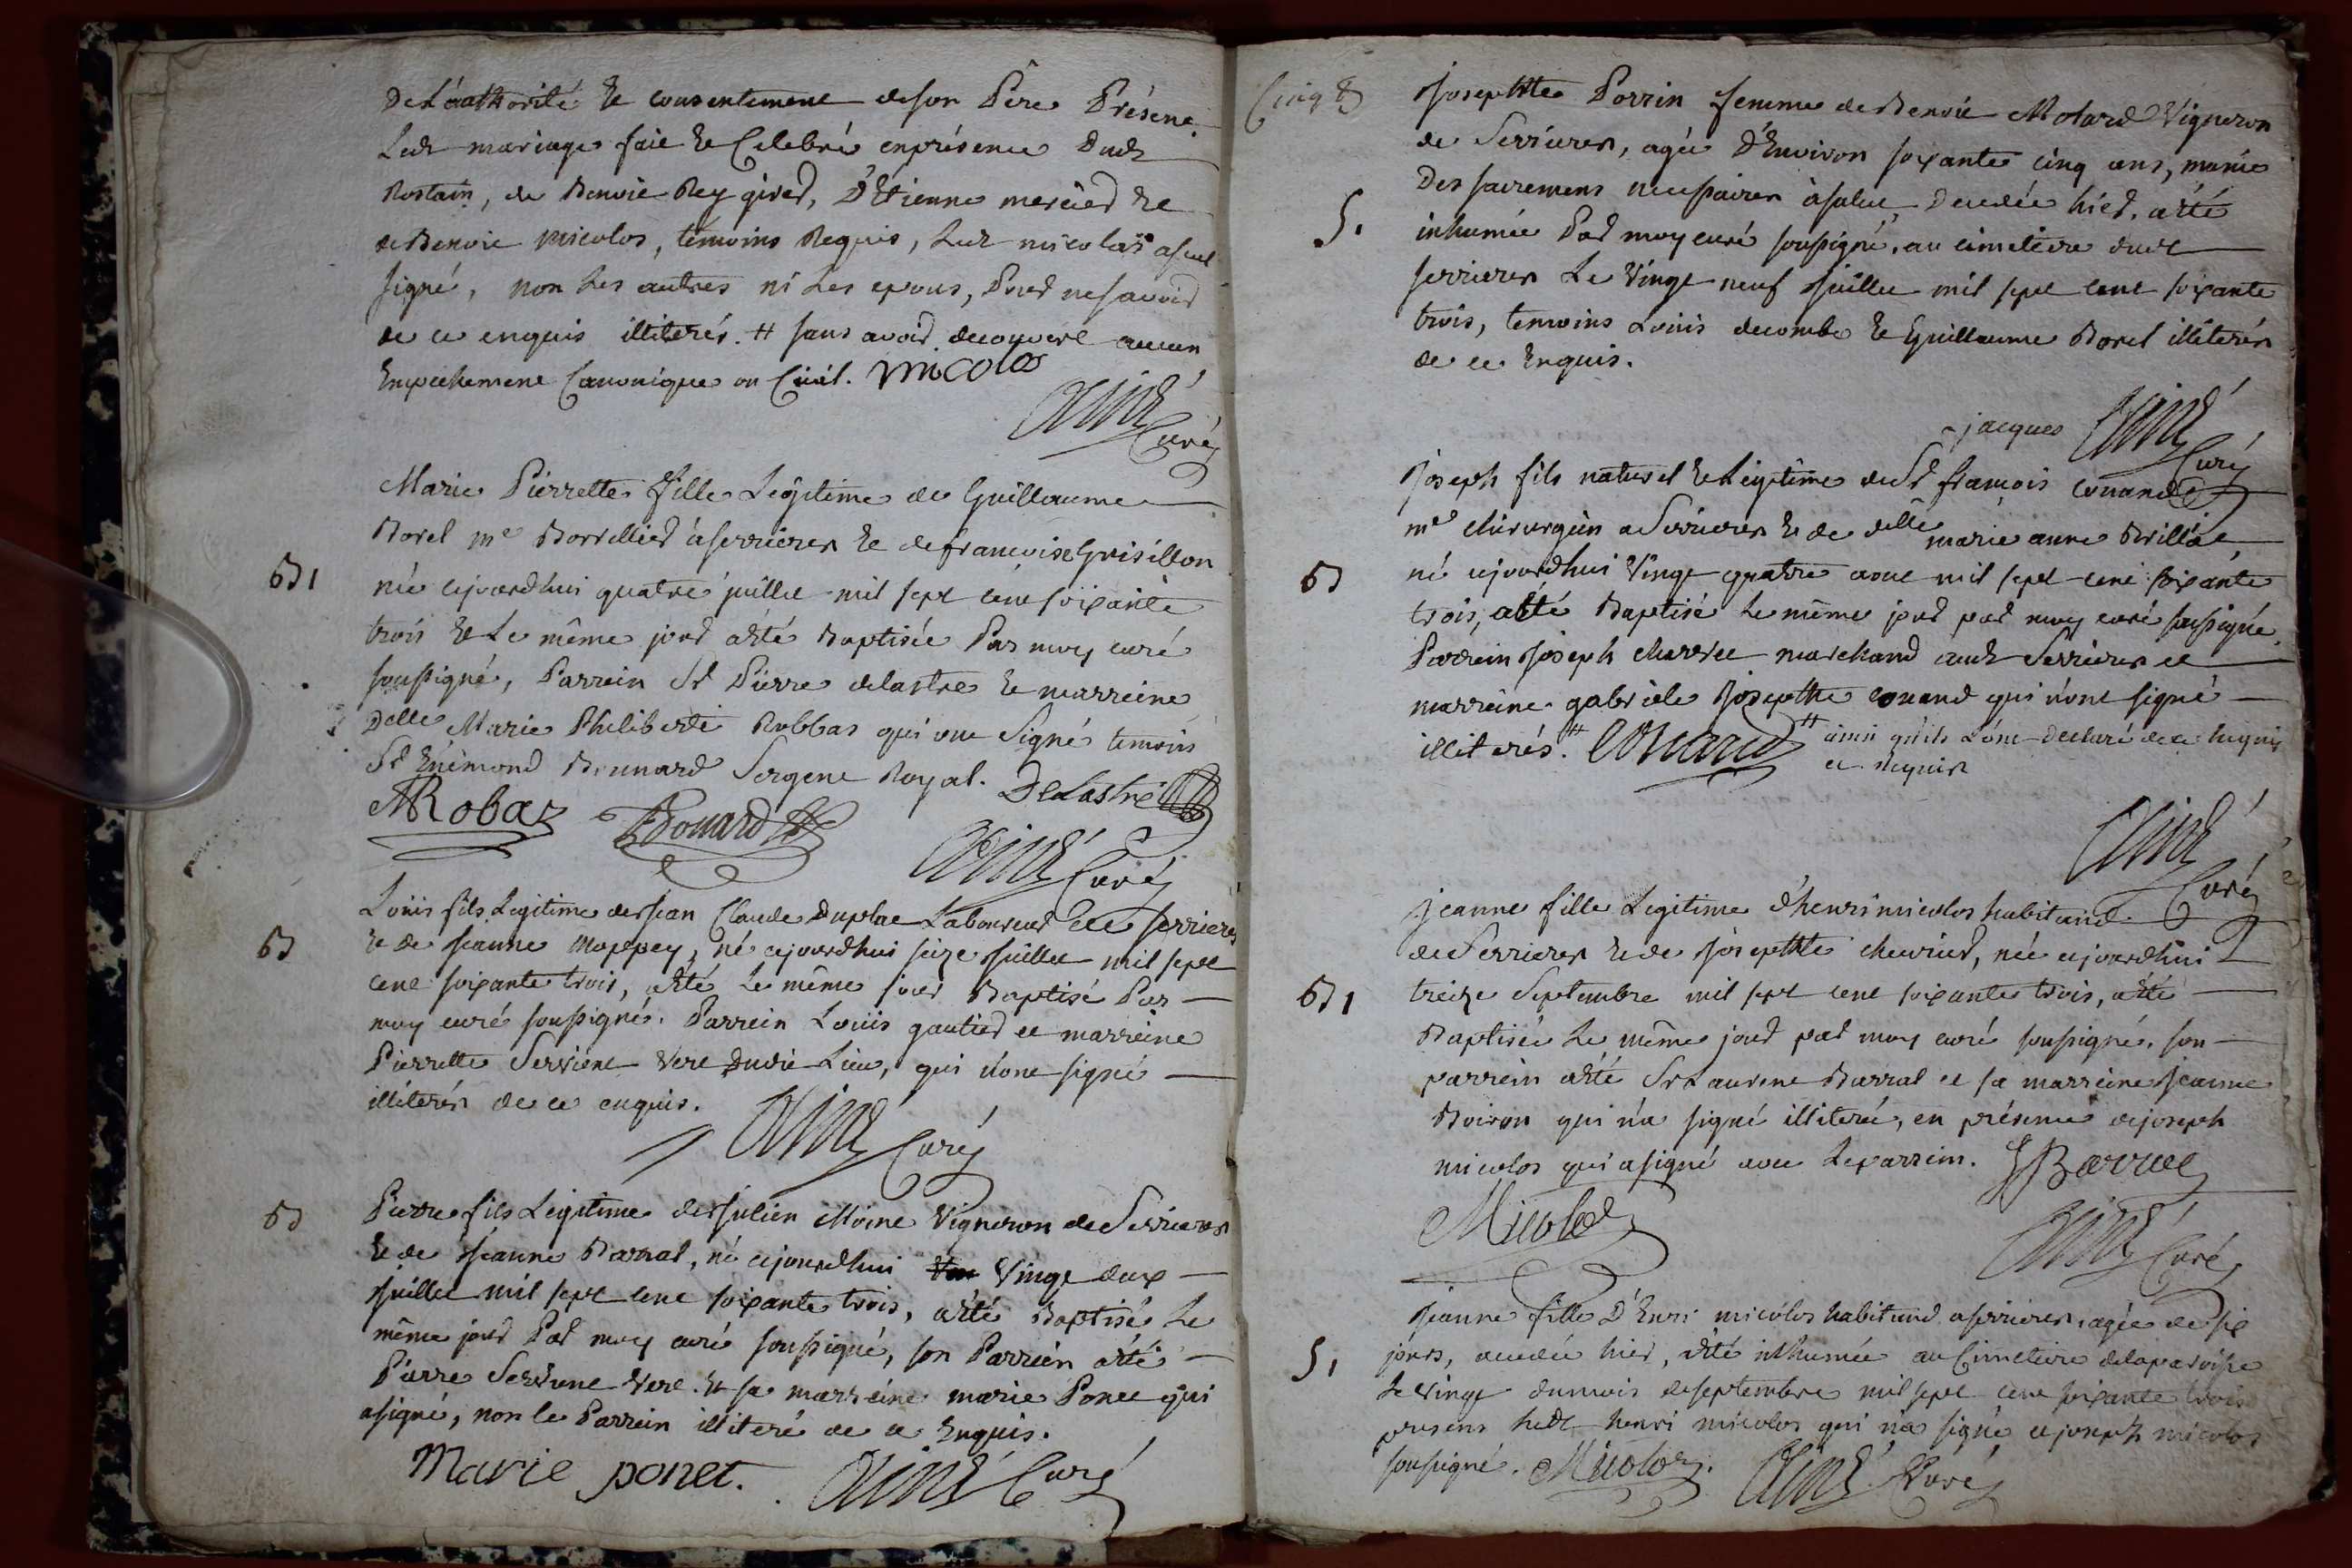 De L'authorité et consentement de son Père Présent
Ledt mariage fait et Celebré en présence Dudt
Rostain, de Benoit Rey gired, D'Etienne mercier et
de Benoit micolos, témoins Requis, Ledt micolos a seul
signé, non Les autres ni Les epoux, Pour ne savoir
de ce enquis illiterés. # sans avoir decouvert aucun
Empechement Canonique ou Civil. Micolos
Aimé
Curé
Marie Pierrette fille Legitime de Guillaume
Borel me Borrellier à serrieres et de francoise Grisillon
B1
née cejourdhui quatre juillet mil sept cent soixante
trois et Le même jour a été Baptisée Par moy curé
soussigné, Parrein Sr Pierre delastre et marreine
Delle Marie Philiberte Robbas qui ont Signé temoins
Sr Enemond Bonnard Sergent Royal. Delastre
MRobaz EBonard
Aimé Curé
Loüis fils Legitime de Jean Claude Duplat Laboureur de serrieres
B
et de Jeanne Moppey, né cejourdhui seize Juillet mil sept
cent soixante trois, a été Le même jour Baptisé Par
moy curé soussigné. Parrein Loüis gautier et marreine
Pierrette Serviene Vert Dudit Lieu, qui n'ont signé
illiterés de ce enquis.
Aimé Curé
B
Pierre fils Legitime de Julien Moine Vigneron de Serrieres
et de Jeanne Barral, né cejourdhui Vingt deux
Juillet mil sept cent soixante trois, a été Baptisé Le
même jour Par moy curé soussigné, son Parrein a été
Pierre Servune Vert. et sa marreine marie Ponce qui
a signé, non le Parrein illiteré de ce Enquis.
Marie ponet. Aimé Curé
Cinq
Josephte Porrin femme de Benoit Motard Vigneron
de Serrieres, agée D'Environ soixante cinq ans, munie
Des sacremens necessaires à salut, Decedée hier, a été
S.
inhumée Par moy curé soussigné, au cimetiere dudt
serrieres Le Vingt neuf Juillet mil sept cent soixante
trois, temoins Loüis decombe et Guillaume Borel illiterés
de ce Enquis.
jacques Aimé
Curé
Joseph fils naturel et Legitime de Sr françois conand
me chirurgien a Serrieres et de delle marie anne Brillat,
B
né cejourdhui Vingt quatre aout mil sept cent soixante
trois, a été Baptisé Le même jour par moy curé soussigné.
Parrein Joseph charvet marchand audt Serrieres et
marreine gabriele Josephte conand qui n'ont signé
illiterés. # conand # ainsi qu'ils L'ont declaré de ce enquis
et requis
Aimé
Curé
jeanne fille Legitime d'henri micolos habitand
de Serrieres et de Josephte chevrier, née cejourdhui
B1
treize Septembre mil sept cent soixante trois, a été
Baptisée Le même jour par moy curé soussigné, son
parrein a été Sr Laurent Barral et sa marreine Jeanne
Boiron qui n'a signé illiterée, en présence de joseph
micolos qui a signé avec Le parrein. LBarral
Micolos
Aimé Curé
Jeanne fille D'Enri micolos habitand a serrieres, agée de six
S.
jours, decedée hier, a été inhumée au Cimetiere de la paroisse
Le vingt du mois de septembre mil sept cent soixante trois
presens ledt henri micolos qui n'a signé et joseph micolos
soussigné. Micolos. Aimé Curé